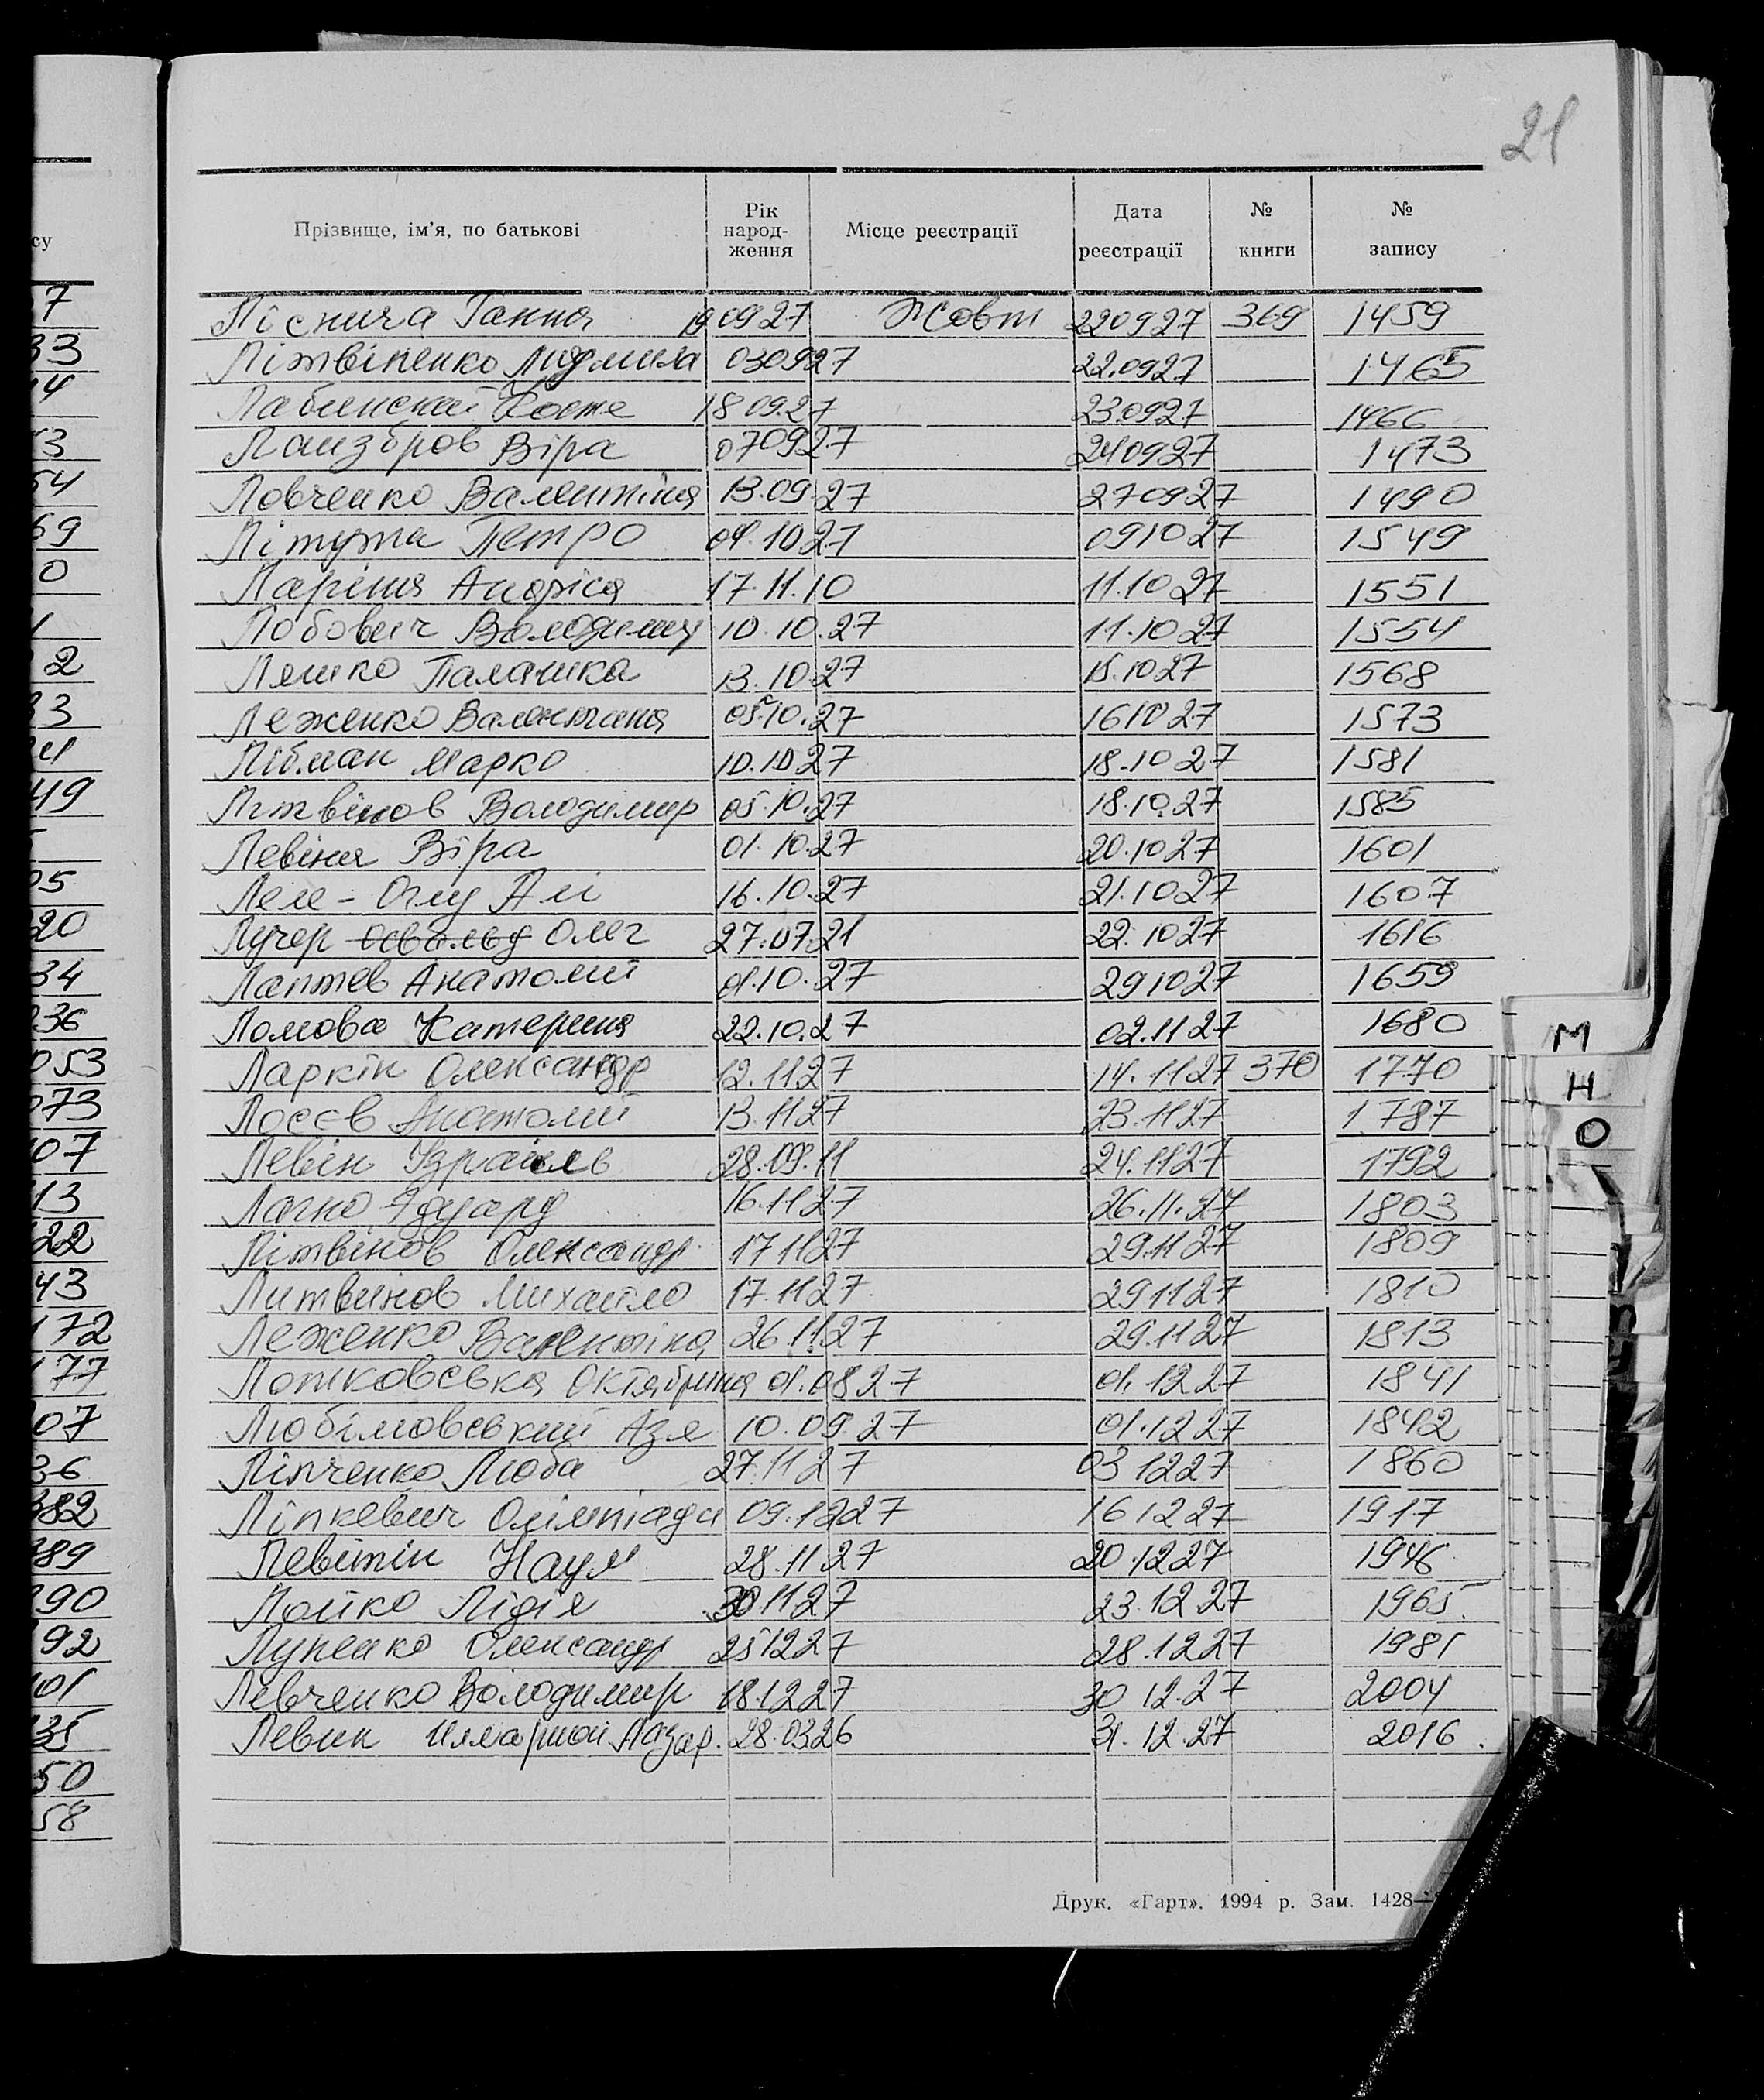 21
Прізвище, ім'я, по батькові Рік народ-ження Місце реєстрації Дата реєстрації № книги № запису
Ліснича Ганна 190927 Жовт 220927 369 1459
Літвіненко Людмила 030927 22.0927 1465
Лабинский 18 09.27 23.0927 1466
Віра 070927 240927 1473
Ловченко Валентіна 13.09.27 270927 1490
Петро 01.10.27 091027 1549
Ларіна 17.11.10 11.1027 1551
Лобович Володимир 10.10.27 11.1027 1554
Ляшко Палашка 13.10.27 15.1027 1568
Леженко Валентина 05.10.27 161027 1573
Лібман Марко 10.1027 18.1027 1581
Літвінов Володимир 05.10.27 18.10.27 1585
Левіна Віра 01.10.27 20.1027 1601
Леле-Оглу Алі 16.10.27 21.1027 1607
Лучер Освальд Олег 27.07.21 22.1027 1616
Лаптев Анатолий 01.10.27 291027 1659
Ломова Катерина 22.10.27 02.1127 1680
Ларкін Олександр 12.1127 14.1127 370 1770
Лосєв Анатолий 13.1127 23.1127 1787
Левін Ізраїль 28.09.11 24.1127 1792
Едуард 16.1127 26.11.27 1803
Літвінов Олександр 171127 29.1127 1809
Литвинов Михайло 17.1127 291127 1810
Леженко Валентіна 26.11.27 29.1127 1813
Лотковська Октябрина 01.0827 01.1227 1841
Любімовський Азя 10.09.27 01.1227 1842
Лінченко Люба 27.1127 031227 1860
Ліпкевич Олімпіада 09.1227 161227 1917
Левітін Наум 28.1127 20.1227 1946
Лойко Лідія 301127 23.1227 1965
Лупенко Олександр 251227 28.1227 1981
Левченко Володимир 18.1227 30 12.27 2004
Левин Лазар. 28.0326 31.12.27 2016
Друк. «Гарт». 1994 р. Зам. 1428—
М
Н
О